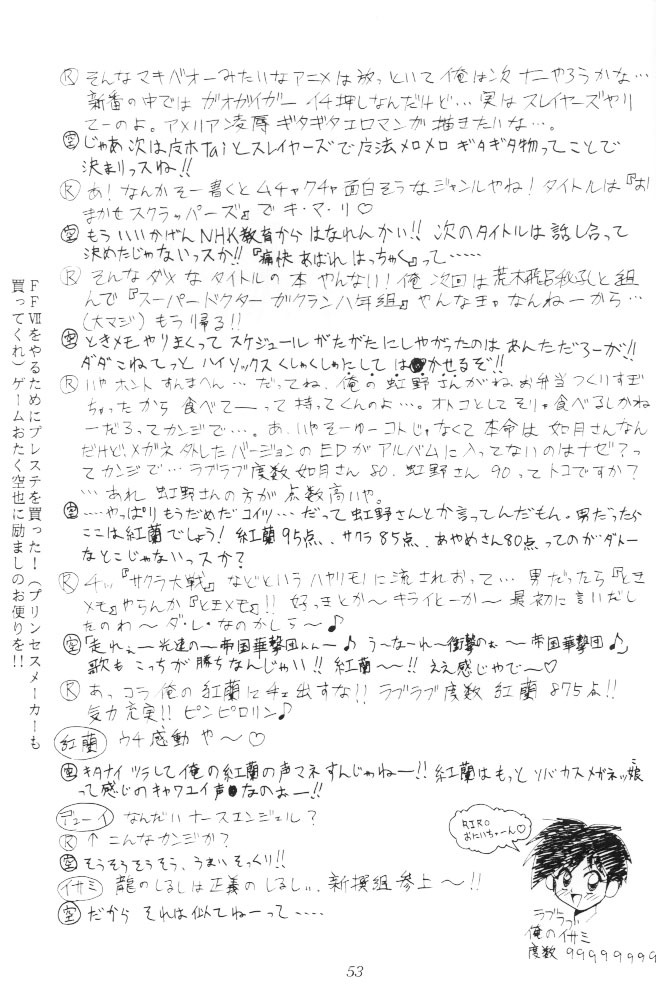 Ⓡ そんなマキバオーみたいなアニメは放っといて俺は次ナニやろうかな…
新番の中では ガオガイガー イチ押しなんだけど… 実は スレイヤーズやり
てーのよ。アメリアン凌辱 ギタギタエロマンが 描きたいな…。
空 じゃあ 次は Taiとスレイヤーズで 魔法メロメロ ギタギタ物ってことで
決まりっスね!!
Ⓡ あ! なんか そー書くと ムチャクチャ面白そうな ジャンルやね! タイトルは『お
まかせスクラッパーズ』で キ・マ・リ♡
空 もういいかげん NHK教育から はなれんかい!! 次のタイトルは 話し合って
決めたじゃないっスか!!『痛快あばれはっちゃく』って……
Ⓡ そんな ダメな タイトルの 本 やんない! 俺 次回は 荒木飛呂秋孔と組
んで『スーパードクター がクラン八年組』やんなきゃなんねーから…
(大マジ) もう帰る!!
空 ときメモ やりまくって スケジュール がたがたにしやがったのは あんただろーが!!
ダダこねてっと ハイソックス くしゃくしゃにして はかせるぞ!!
Ⓡ いや ホント すんまへん… だってね、俺の虹野さんがね お弁当つくりすぎ
ちゃったから 食べてーって 持ってくんのよ…。オトコとして そりゃ食べるしかね
ーだろってカンジで…。あ、いや そーゆーコトじゃなくて 本命は 如月さんなん
だけど、メガネ外したバージョンの EDが アルバムに 入ってないのは ナゼ?っ
てカンジで… ラブラブ度数 如月さん 80、虹野さん 90って トコですか?
… あれ 虹野さんの方が 点数高いや。
空 ……やっぱりもうだめだコイツ… だって虹野さんとか言ってんだもん。男だったら
ここは紅蘭でしょう! 紅蘭95点、サクラ85点、あやめさん80点ってのがダトー
なとこじゃないっスか?
Ⓡ 『サクラ大戦』などという ハヤリモノに流されおって… 男だったら『とき
メモ』やらんか『ときメモ』!! 好っきとか〜 キライとーか〜 最初に 言いだし
たのわ〜 ダ・レ・なのかしら〜♪
空 「走れぇ〜 光速の〜 帝国華撃団んん〜♪ う〜な〜れ〜 衝撃のぉ〜 帝国華撃団♪」
歌も こっちが 勝ちなんじゃい!! 紅蘭〜〜!! ええ感じやで〜♡
Ⓡ あっ コラ 俺の 紅蘭に チェ出すな!! ラブラブ度数 紅蘭 875点!!
気力充実!! ピンピロリン♪
紅蘭 ウチ感動や〜♡
空 キタナイツラして俺の紅蘭の声マネすんじゃねー!! 紅蘭はもっと ソバカスメガネッ娘
って感じのキャワエイ声なのぉー!!
デューイ なんだい ナースエンジェル?
Ⓡ ↑ こんなカンジか?
空 そうそうそうそう、うまい そっくり!!
イサミ 龍のしるしは 正義のしるし、新撰組 参上〜!!
空 だから それは似てねーって……
RIRO
おにいちゃーん♡
ラブラブ
俺のイサミ
度数 99999999
FFⅦをやるためにプレステを買った!(プリンセスメーカーも
買ってくれ)ゲームおたく空也に励ましのお便りを!!
53